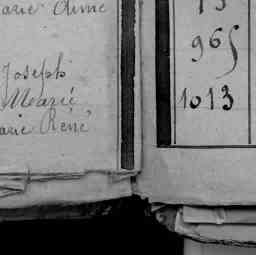 arie Aimé
Joseph
Marie
arie René
13
965
1013